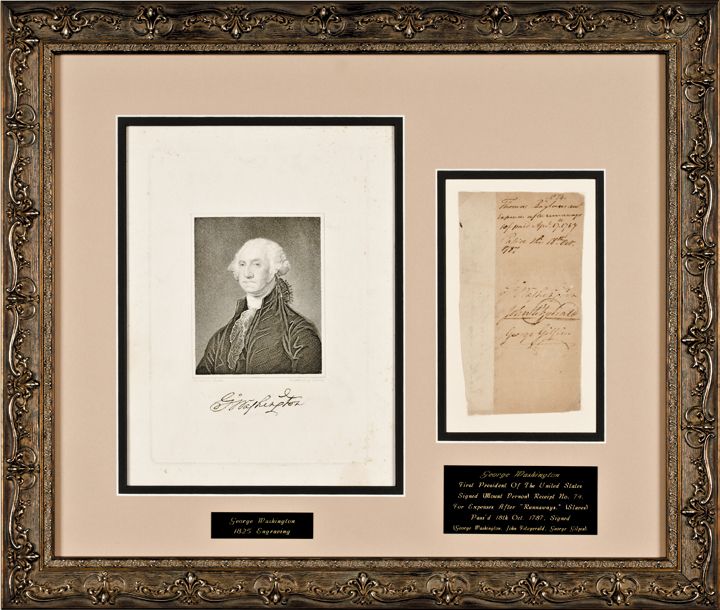 G:Washington
George Washington
1825 Engraving
No 74
Thomas
expences after runaways
paid Apl. 17. 1787
Pass'd the 18th Oct.
1787
G:Washington
John Fitzgerald
George Gilpin
George Washington
First President Of The United States
Signed (Mount Person) Receipt No. 74.
For Expenses After "Runnaways," (Slaves)
Pass'd 18th Oct. 1787, Signed
(George Washington, John Fitzgerald, George Gilpin)